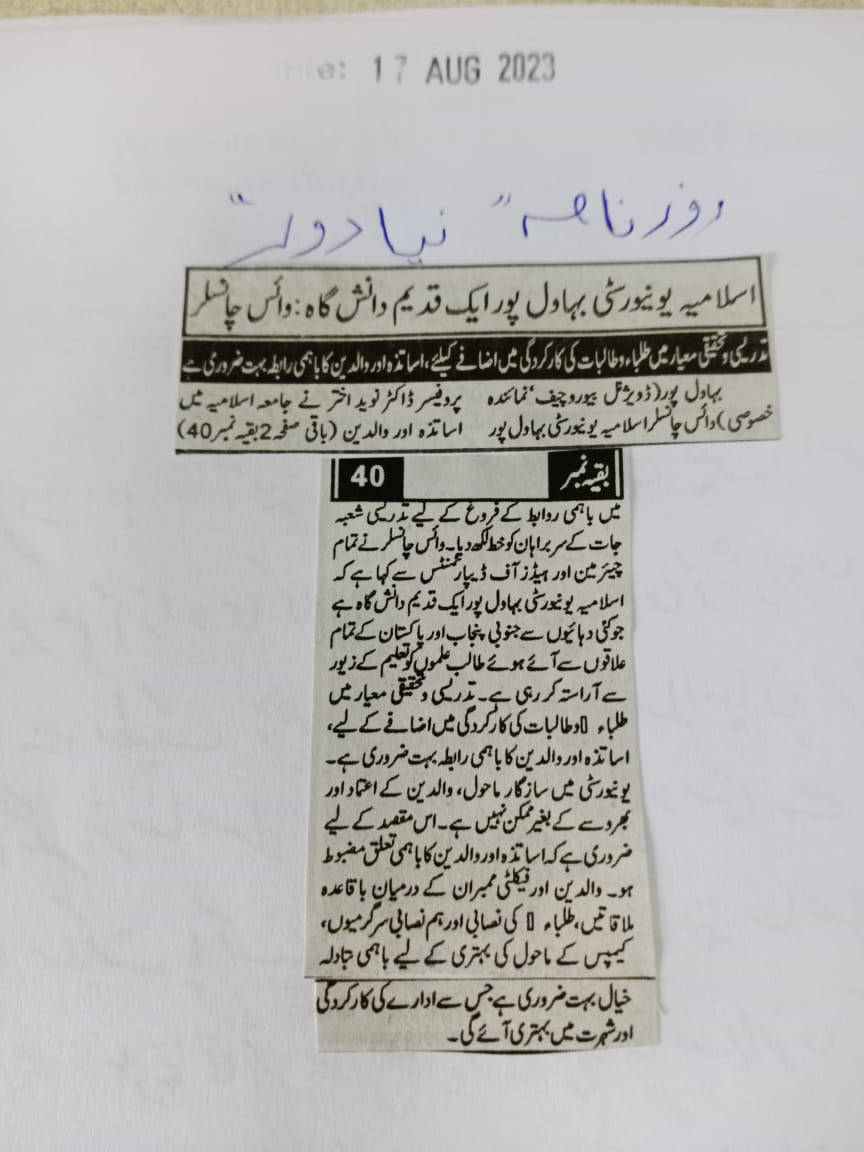 17 AUG 2023
روزنامہ "نیا دور"
اسلامیہ یونیورسٹی بہاول پور ایک قدیم دانش گاہ: وائس چانسلر
تدریسی و تحقیقی معیار میں طلباء و طالبات کی کارکردگی میں اضافے کیلئے، اساتذہ اور والدین کا باہمی رابطہ بہت ضروری ہے
بہاول پور (ڈویژنل بیورو چیف، نمائندہ
خصوصی) وائس چانسلر اسلامیہ یونیورسٹی بہاول پور
پروفیسر ڈاکٹر نوید اختر نے جامعہ اسلامیہ میں
اساتذہ اور والدین (باقی صفحہ 2 بقیہ نمبر 40)
بقیہ نمبر 40
میں باہمی روابط کے فروغ کے لیے تدریسی شعبہ
جات کے سربراہان کو خط لکھ دیا۔ وائس چانسلر نے تمام
چیئرمین اور ہیڈز آف ڈیپارٹمنٹس سے کہا ہے کہ
اسلامیہ یونیورسٹی بہاول پور ایک قدیم دانش گاہ ہے
جو کئی دہائیوں سے جنوبی پنجاب اور پاکستان کے تمام
علاقوں سے آئے ہوئے طالب علموں کو تعلیم کے زیور
سے آراستہ کر رہی ہے۔ تدریسی و تحقیقی معیار میں
طلباء و طالبات کی کارکردگی میں اضافے کے لیے،
اساتذہ اور والدین کا باہمی رابطہ بہت ضروری ہے۔
یونیورسٹی میں سازگار ماحول، والدین کے اعتماد اور
بھروسے کے بغیر ممکن نہیں ہے۔ اس مقصد کے لیے
ضروری ہے کہ اساتذہ اور والدین کا باہمی تعلق مضبوط
ہو۔ والدین اور فیکلٹی ممبران کے درمیان باقاعدہ
ملاقاتیں، طلباء کی نصابی اور ہم نصابی سرگرمیوں،
کیمپس کے ماحول کی بہتری کے لیے باہمی تبادلہ
خیال بہت ضروری ہے جس سے ادارے کی کارکردگی
اور شہرت میں بہتری آئے گی۔